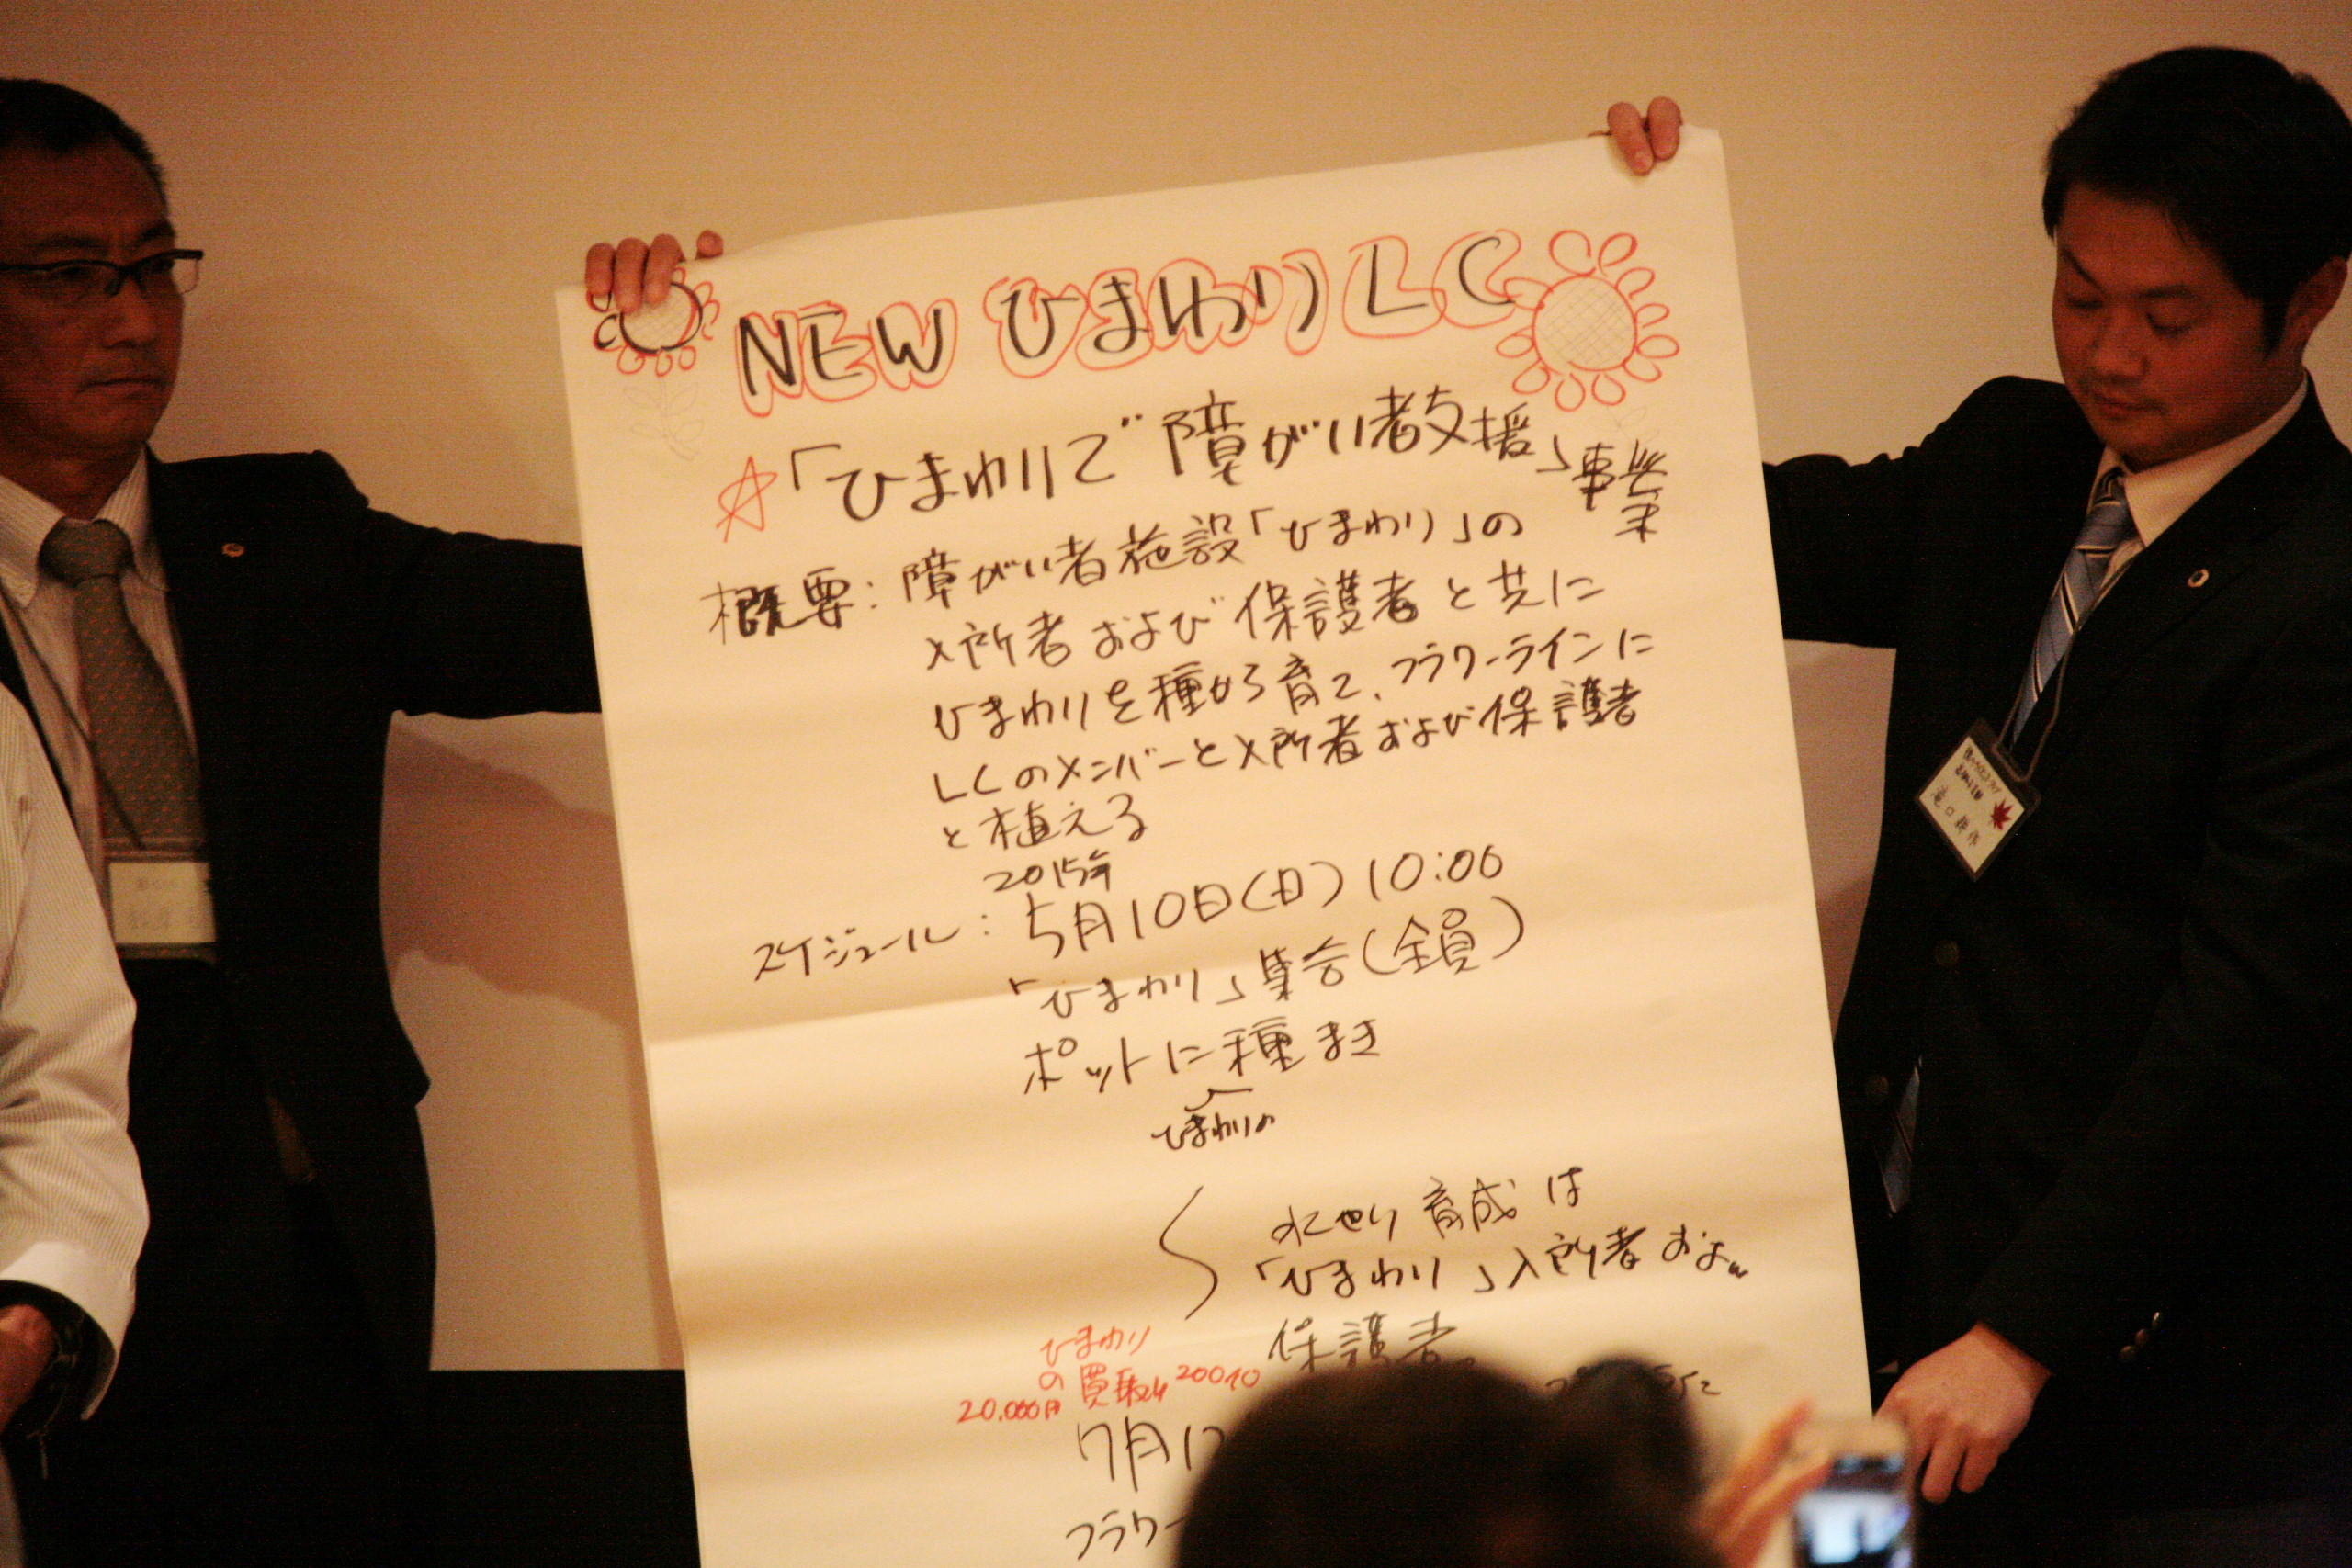 NEW ひまわり LC
☆「ひまわりで障がい者支援」事業
概要：障がい者施設「ひまわり」の
入所者および保護者と共に
ひまわりを種から育て、フラワーラインに
LCのメンバーと入所者および保護者
と植える
2015年
スケジュール：5月10日(日) 10:00
「ひまわり」集合(全員)
ポットに種まき
ひまわりの
水やり育成は
「ひまわり」入所者およ
保護者
ひまわり
の買取り
20,000円
7月1
フラワー